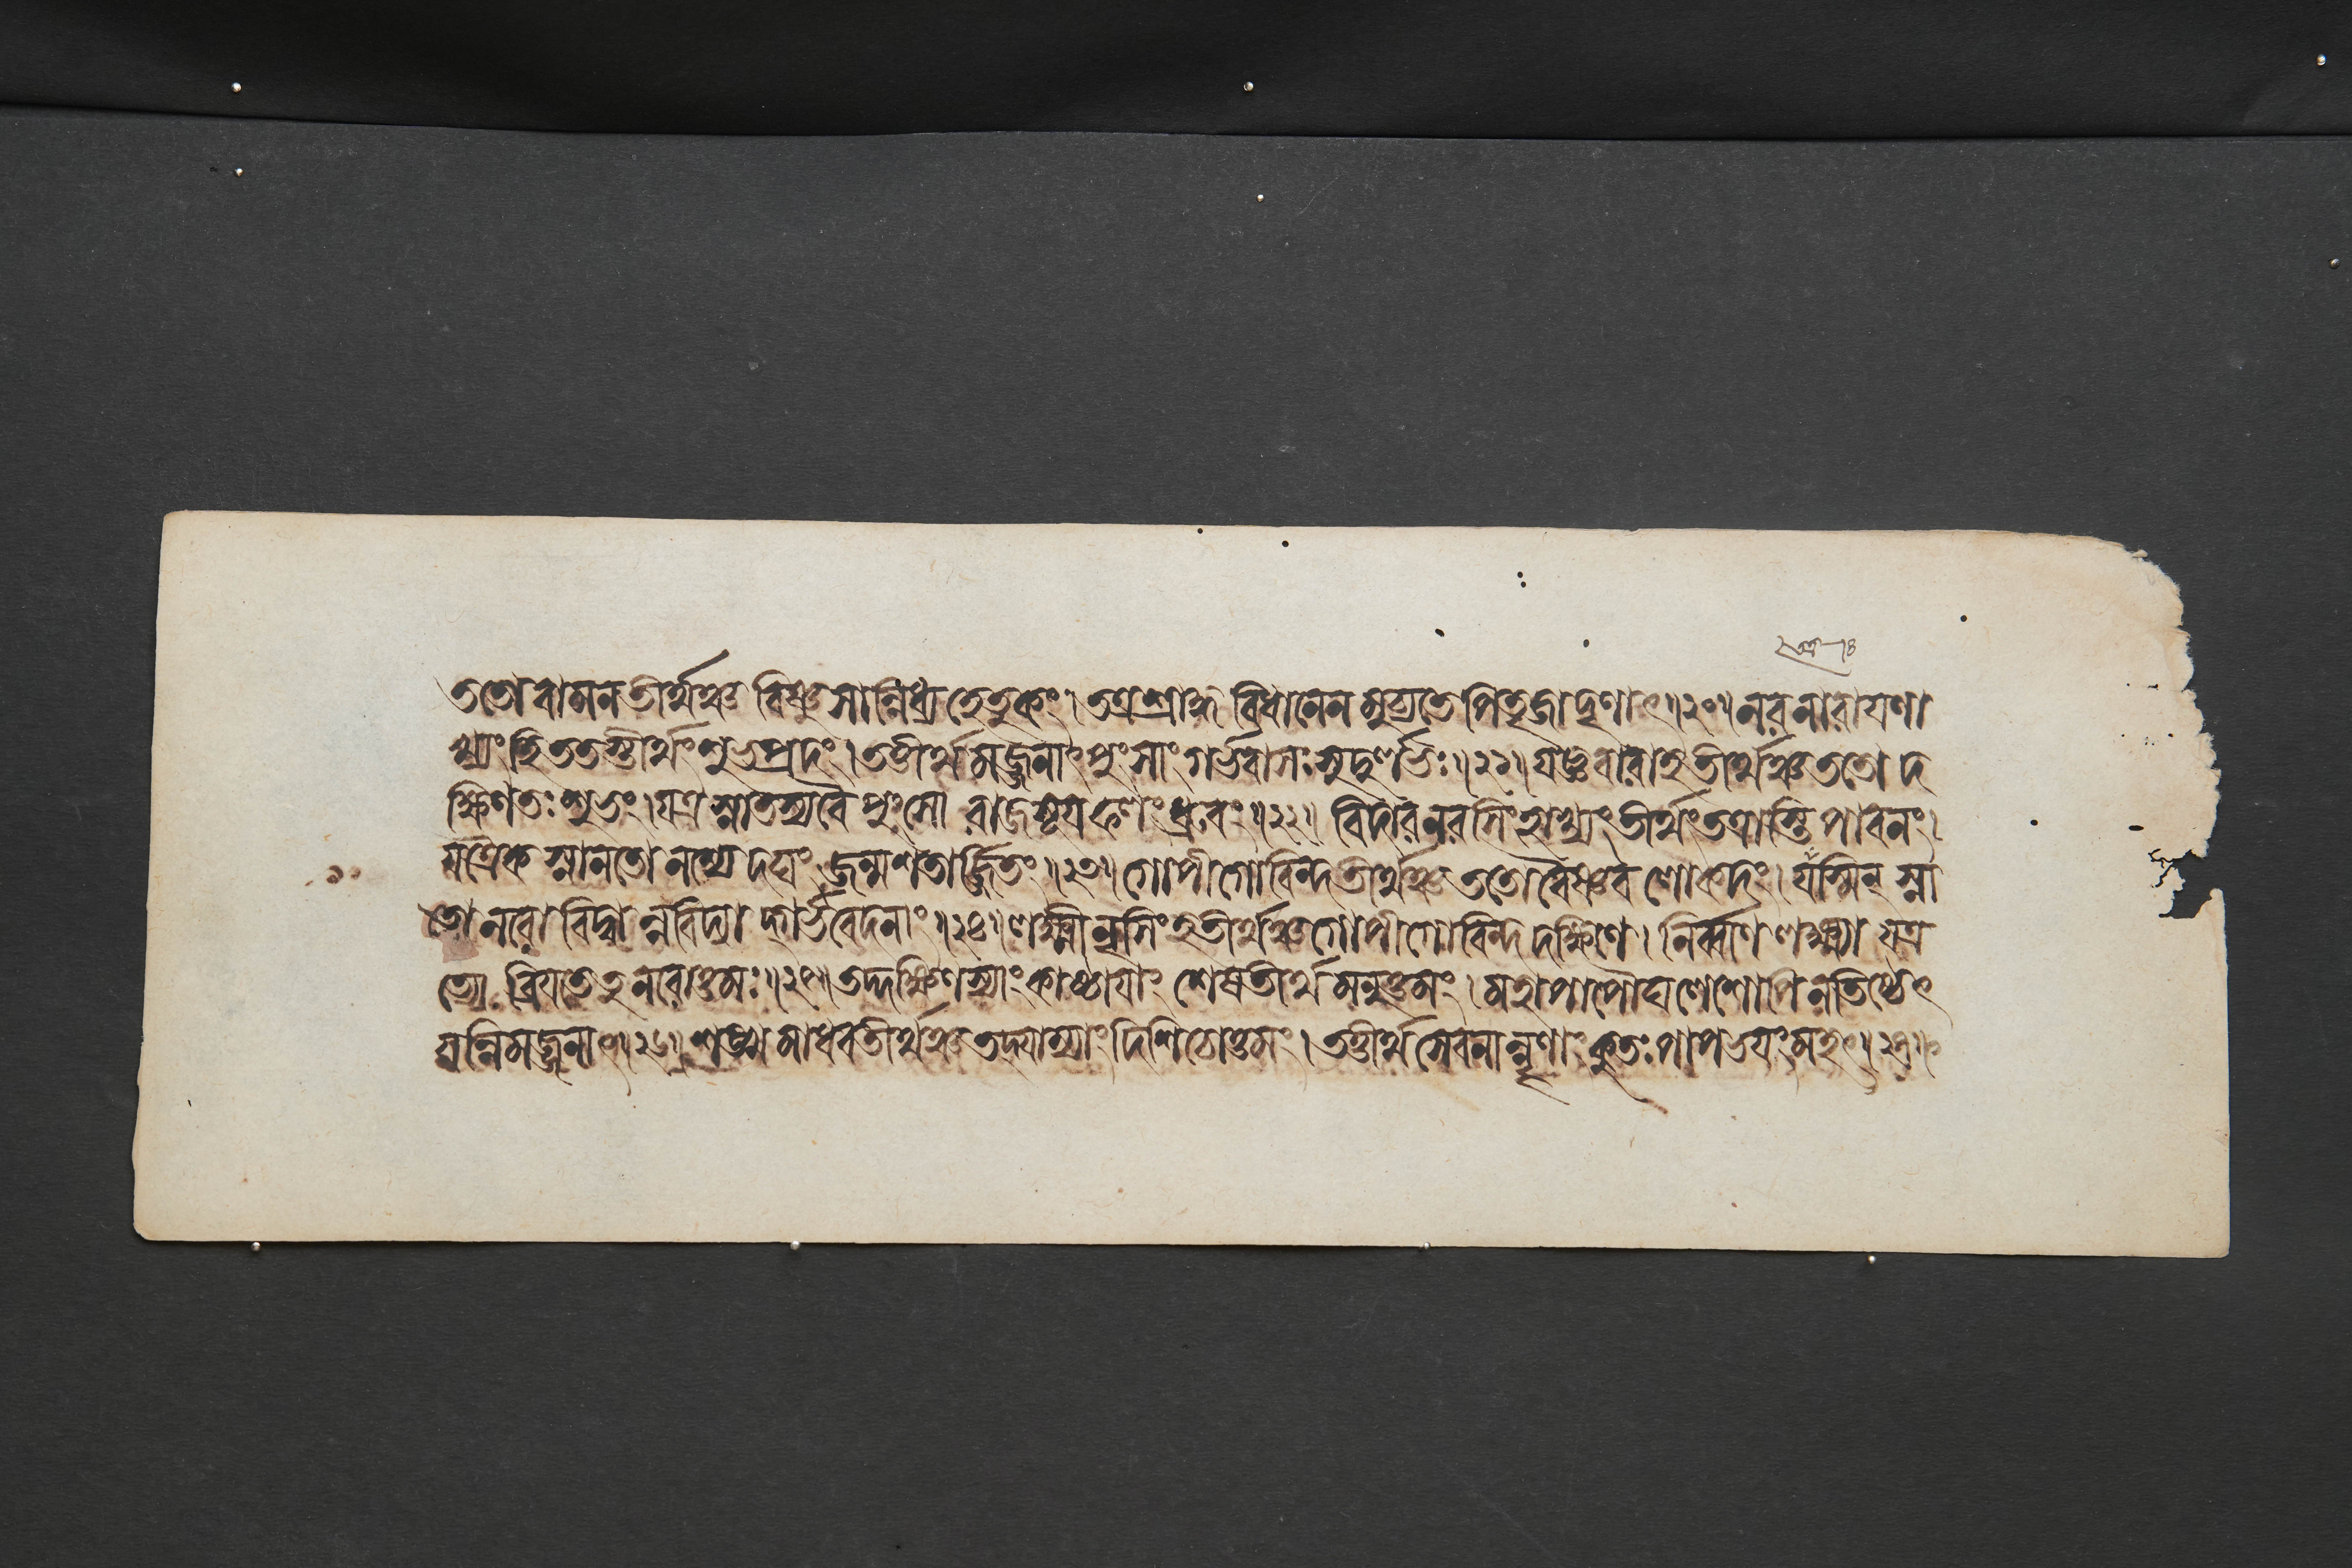 ততো বামন তীর্থঞ্চ বিষ্ণু সান্নিধ্য হেতুকং । তত্র শ্রাদ্ধ বিধানেন মুচ্যতে পিতৃজাদৃণাৎ ॥ ২০ ॥ নর নারায়ণা
খ্যং হি ততস্তীর্থং শুভপ্রদং । তত্তীর্থ মজ্জনাৎ পুংসাং গর্ভবাসঃ সুদুর্ল্লভঃ ॥ ২১ ॥ যজ্ঞবারাহ তীর্থঞ্চ ততো দ
ক্ষিণতঃ শুভং । যত্র স্নাতস্য বৈ পুংসো রাজসূয় ফলং ধ্রুবং ॥ ২২ ॥ বিদার নরসিংহাখ্যং তীর্থং তত্রাস্তি পাবনং ।
যত্রৈক স্নানতো নশ্যে দঘং জন্মশতার্জ্জিতং ॥ ২৩ ॥ গোপীগোবিন্দ তীর্থঞ্চ ততো বৈষ্ণব লোকদং । যস্মিন্ স্না
তো নরো বিদ্বান্ন বিদ্যা দ্গর্ভবেদনাং ॥ ২৪ ॥ লক্ষ্মীনৃসিংহ তীর্থঞ্চ গোপীগোবিন্দ দক্ষিণে । নির্ব্বাণ লক্ষ্ম্যা যত্র
ত্যো ব্রিয়তে তু নরোত্তমঃ ॥ ২৫ ॥ তদ্দক্ষিণস্যাং কাষ্ঠায়াং শেষতীর্থ মনুত্তমং । মহাপাপৌঘ লেশোপি ন তিষ্ঠেৎ
যন্নিমজ্জনাৎ ॥ ২৬ ॥ শঙ্খ মাধব তীর্থঞ্চ তদ্যাম্যাং দিশি চোত্তমং । তত্তীর্থ সেবনান্নৃণাং কুতঃ পাপভয়ং মহৎ ॥ ২৭ ॥